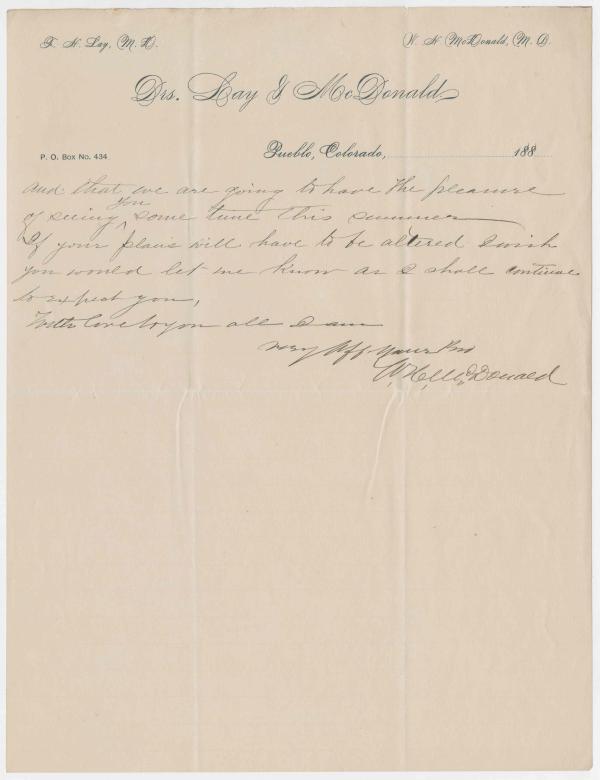 F. N. Lay, (M. D.
W. H. McDonald, (M. D.
Drs. Lay & McDonald
P. O. Box No. 434
Pueblo, Colorado, 188
And that we are going to have the pleasure
of seeing you some time this summer
If your plans will have to be altered I wish
you would let me know as I shall continue
to expect you,
With love to you all I am
very Aff yours Bro
W. H. McDonald